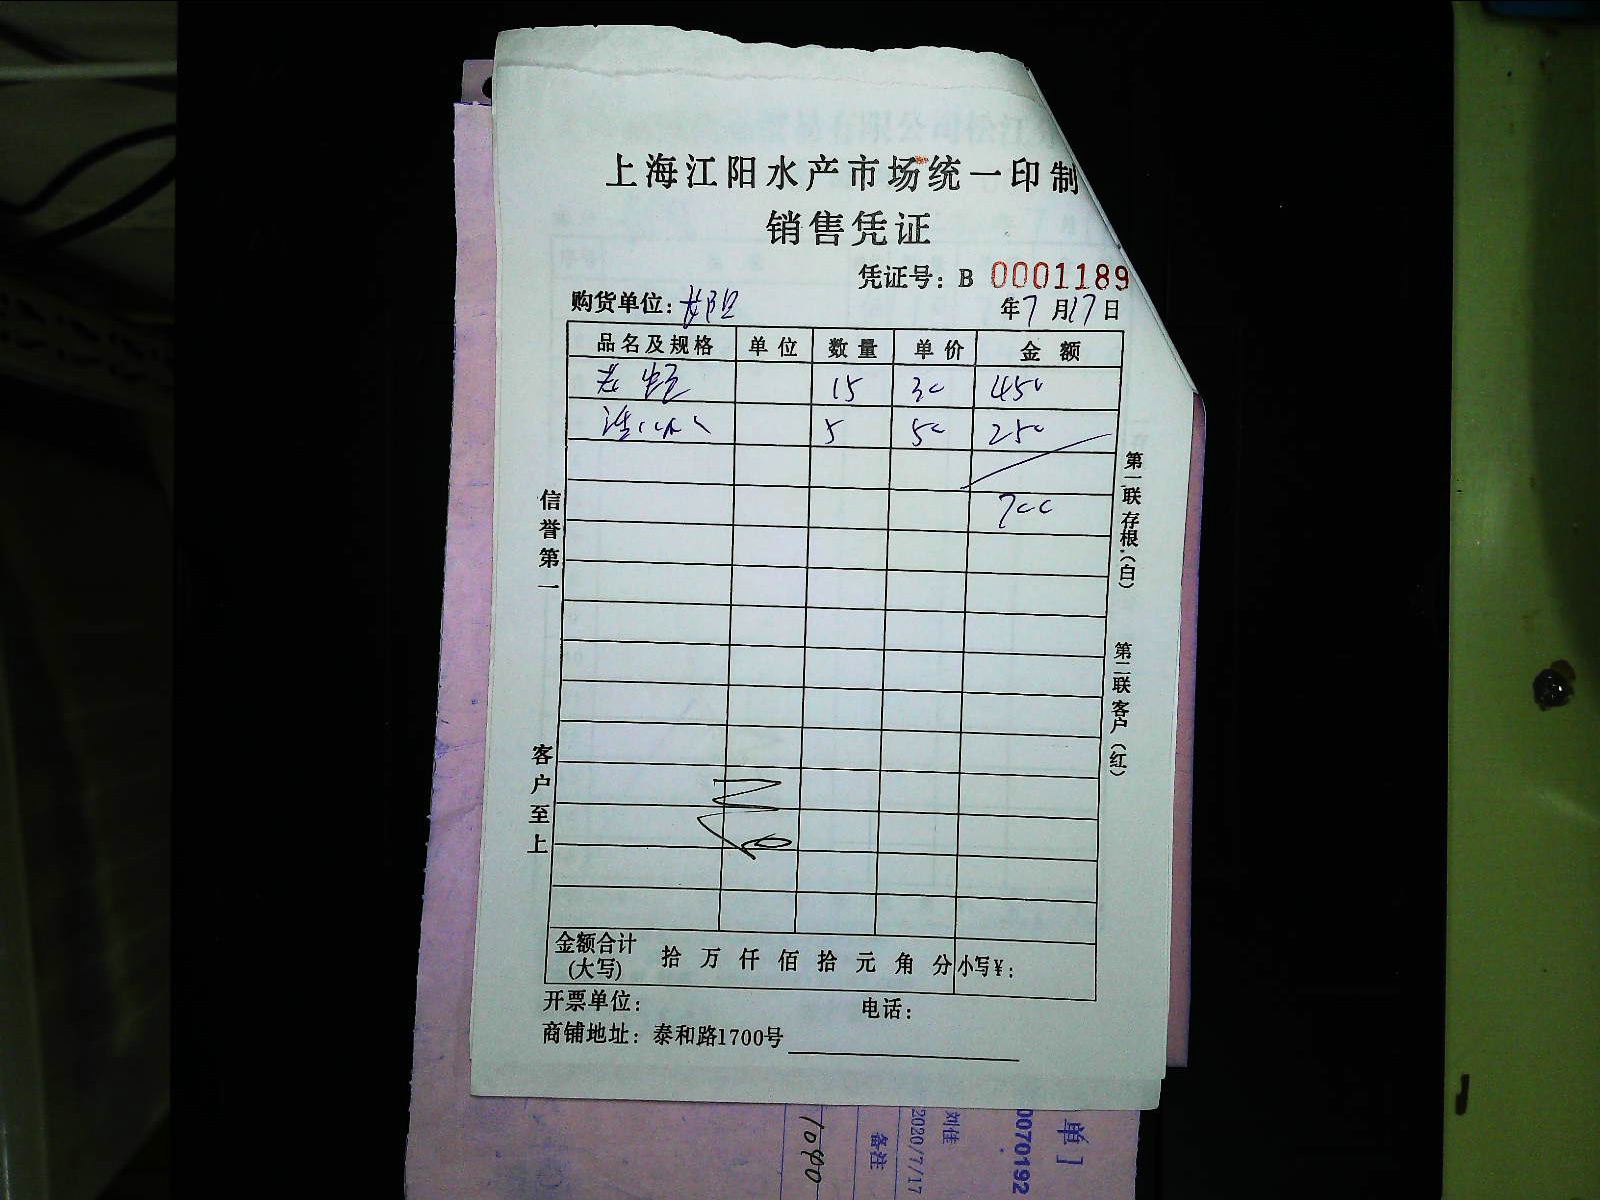 上海江阳水产市场统一印制
销售凭证
凭证号：B 0001189
购货单位：
年7月17日
品名及规格 单位 数量 单价 金额
15 30 450
5 50 250
700
信誉第一
客户至上
第一联存根（白）
第二联客户（红）
金额合计(大写) 拾万仟佰拾元角分 小写¥：
开票单位： 电话：
商铺地址：泰和路1700号
单]
0070192
刘佳
2020/7/17
备注
1040